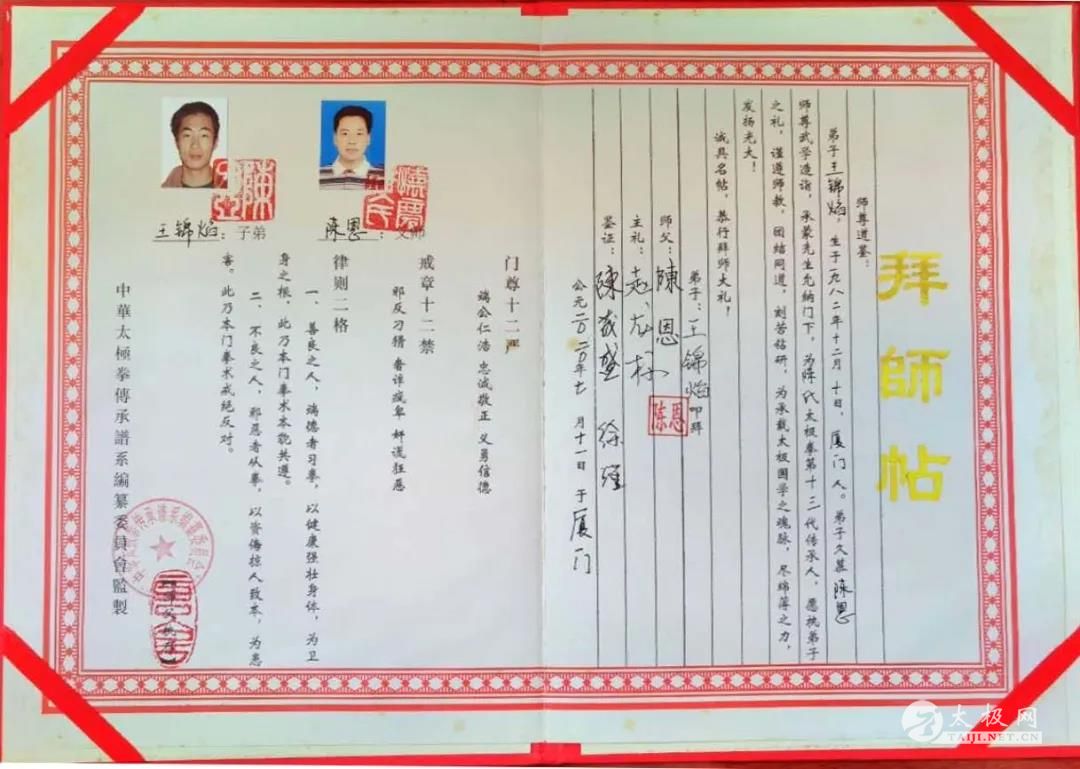 拜師帖
师尊道鉴：
弟子王锦焰，生于一九八二年十二月十日，厦门人。弟子久慕陈恩
师尊武学造诣，承蒙先生允纳门下，为陈氏太极拳第十三代传承人，愿执弟子
之礼，谨遵师教，团结同道，刻苦钻研，为承载太极国学之魂脉，尽绵薄之力，
发扬光大！
诚具名帖，恭行拜师大礼！
弟子：王锦焰叩拜
师父：陳恩
陈恩
主礼：
签证：陳成盛
公元二〇二〇年七月十一日于厦门
王锦焰：子弟
陈恩：父师
门尊十二严
端公仁浩 忠诚敬正 义勇信德
戒章十二禁
邪反刁猾 奢诈疯卑 奸谎狂恶
律则二格
一、善良之人，端德者习拳，以健康强壮身体，为卫
身之根，此乃本门拳术本貌共遵。
二、不良之人，邪恶者从拳，以资侮掠人致本，为患
害。此乃本门拳术戒绝反对。
中華太極拳傳承譜系編纂委員會監製
太极网
TAIJI.NET.CN